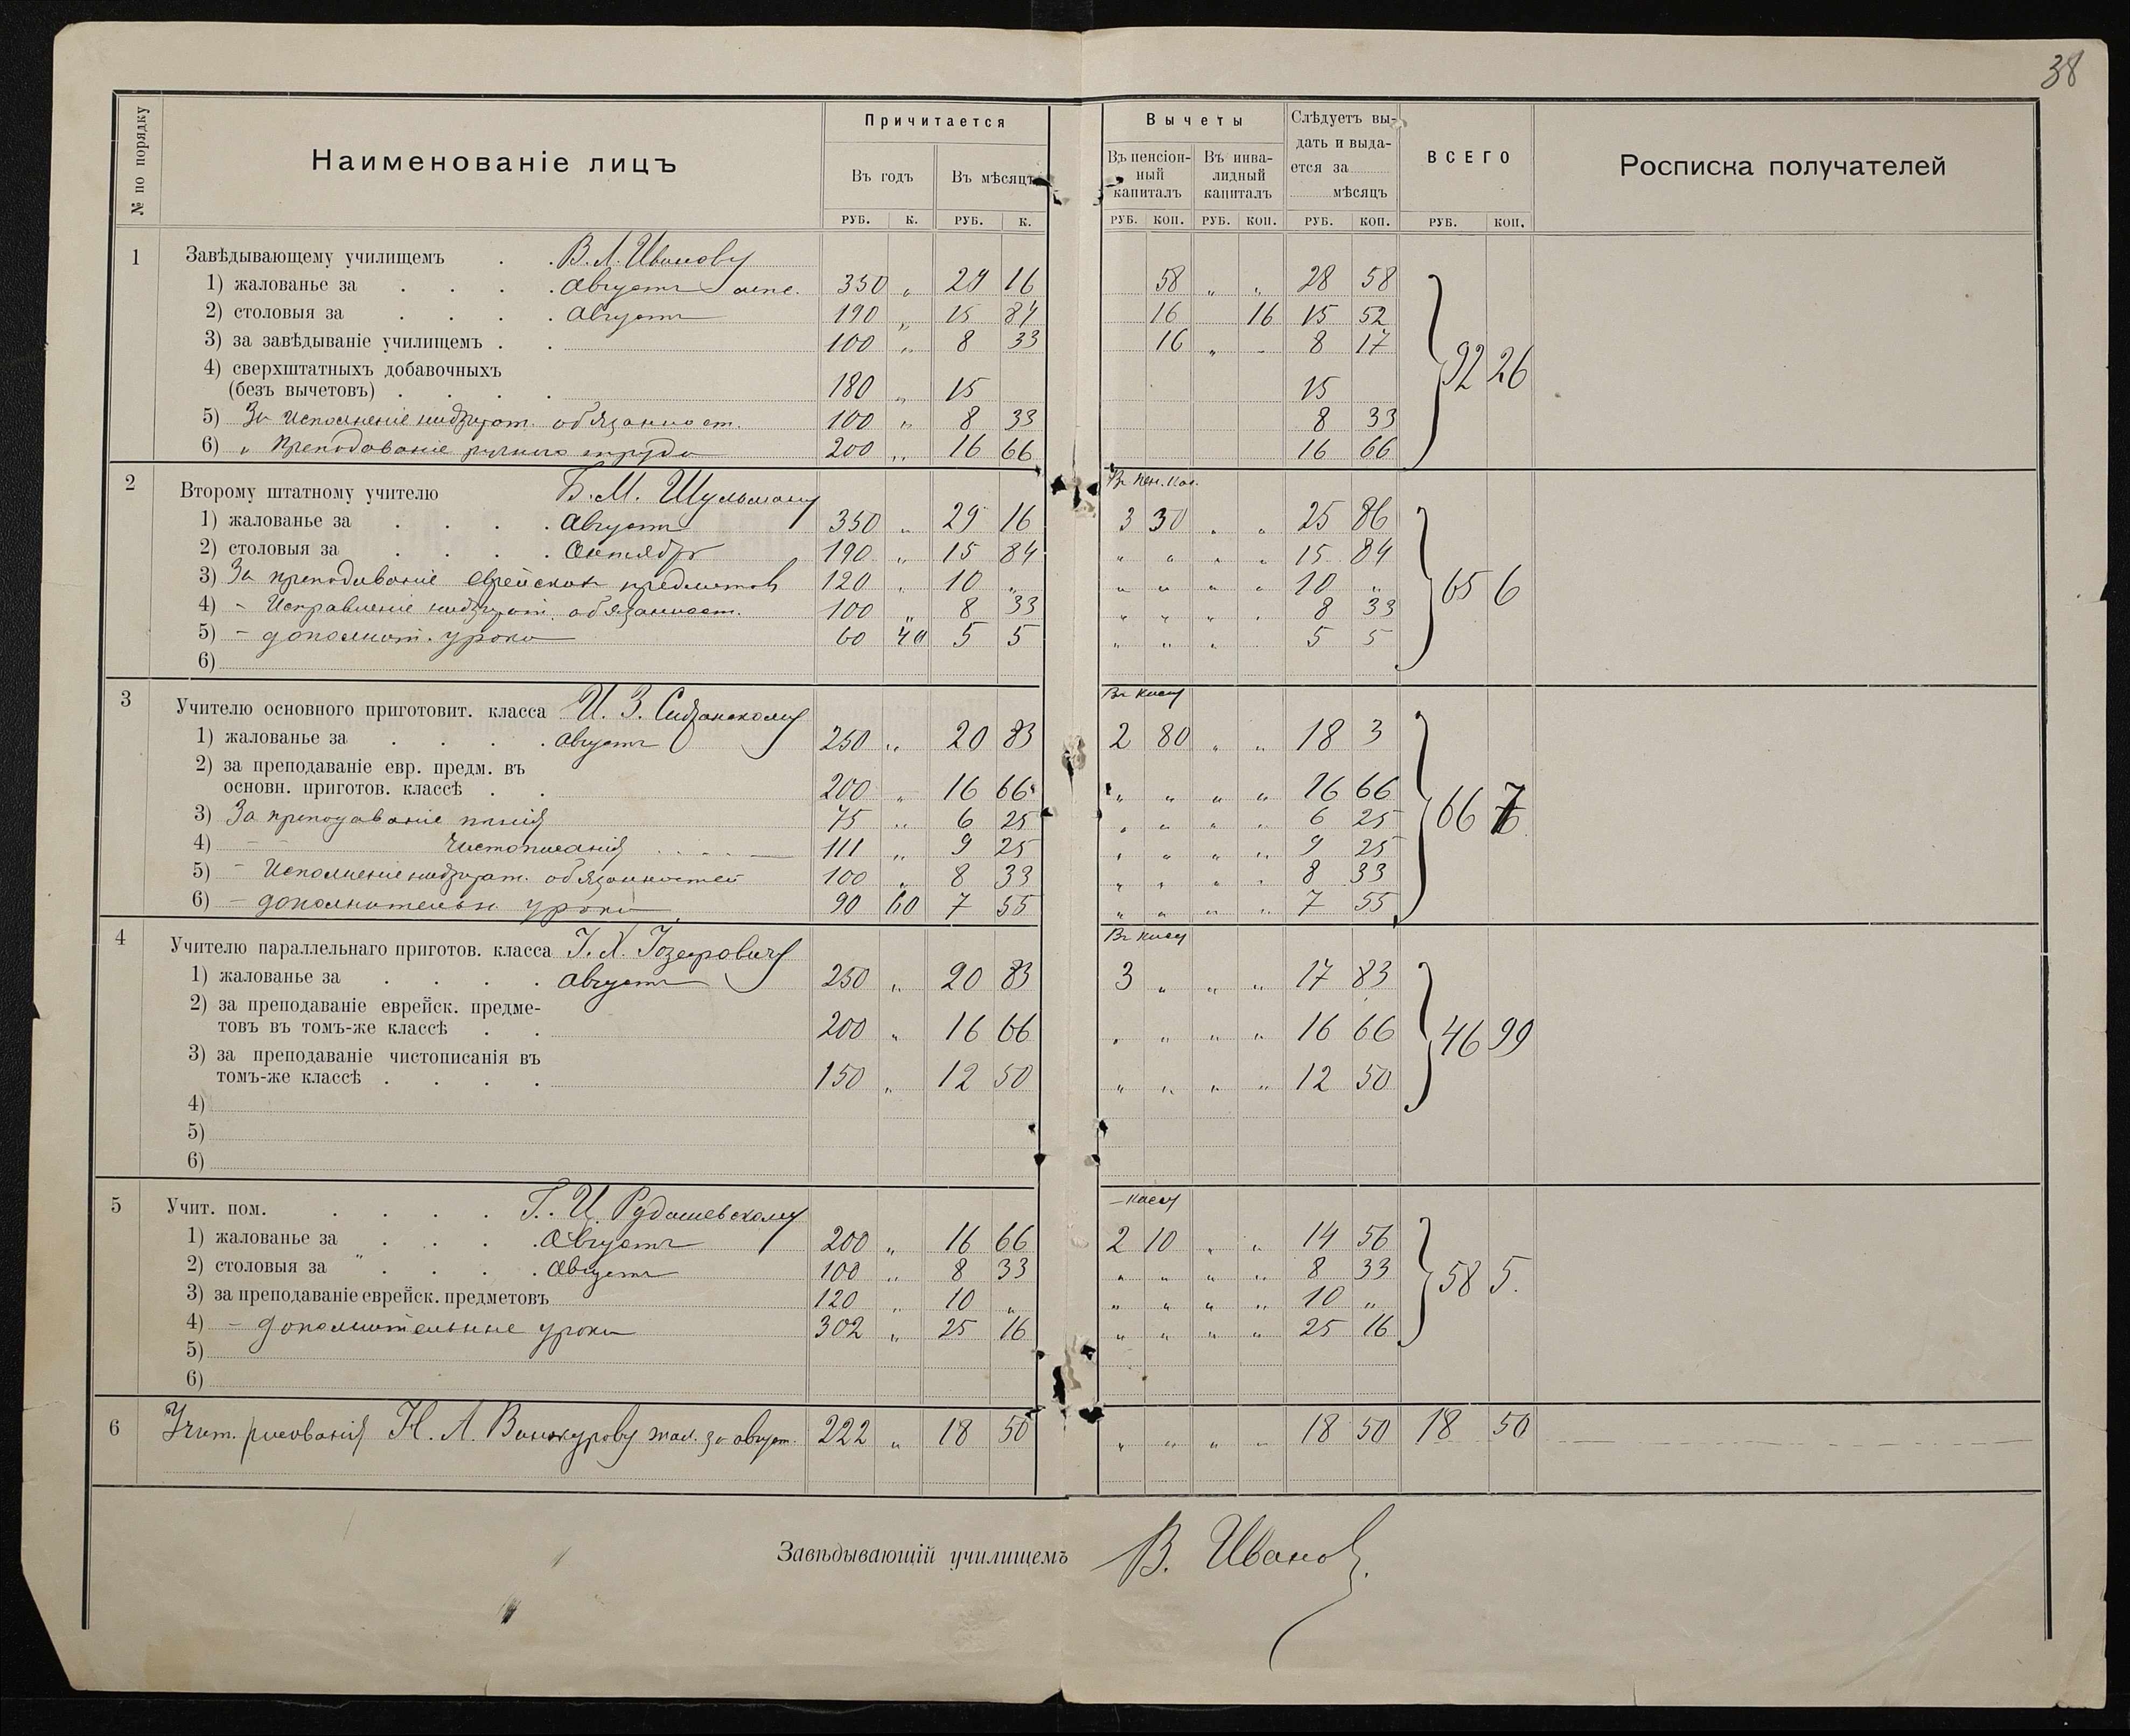 38
№ по порядку
Наименованіе лицъ
Причитается
Въ годъ
Въ мѣсяцъ
РУБ. К. РУБ. К.
Вычеты
Въ пенсіон-
ный
капиталъ
Въ инва-
лидный
капиталъ
Слѣдуетъ вы-
дать и выда-
ется за
мѣсяцъ
ВСЕГО
Росписка получателей
РУБ. КОП. РУБ. КОП. РУБ. КОП. РУБ. КОП.
1 Завѣдывающему училищемъ В. Л. Иванову
1) жалованье за Августъ 350 „ 29 16 58 „ „ 28 58
2) столовыя за Августъ 190 „ 15 84 16 16 15 52
3) за завѣдываніе училищемъ 100 „ 8 33 16 „ „ 8 17
4) сверхштатныхъ добавочныхъ
(безъ вычетовъ) 180 „ 15 15
92 26
5) За Исполненіе надзират. обязанност. 100 „ 8 33 8 33
6) „ Преподованіе ручного труда 200 „ 16 66 16 66
2 Второму штатному учителю Б. М. Шульману Въ Пен. Кап.
1) жалованье за Августъ 350 „ 29 16 3 30 „ „ 25 86
2) столовыя за Октябрь 190 „ 15 84 „ „ „ „ 15 84
3) За преподаваніе Еврейскихъ предметовъ 120 „ 10 „ „ „ „ „ 10 „
65 6
4) – Исправленіе надзират. обязанност. 100 „ 8 33 „ „ „ „ 8 33
5) – дополнит. уроки 60 40 5 5 „ „ „ 5 5
6)
3 Учителю основного приготовит. класса И. З. Въ Кассу
1) жалованье за Августъ 250 „ 20 83 2 80 „ „ 18 3
2) за преподаваніе евр. предм. въ
основн. приготов. классѣ 200 „ 16 66 „ „ „ „ 16 66
3) За преподаваніе пѣнія 75 „ 6 25 „ „ „ „ 6 25
66 7
4) – – Чистописанія 111 „ 9 25 „ „ „ „ 9 25
5) – Исполненіе надзират. обязанностей 100 „ 8 33 „ „ „ „ 8 33
6) – дополнительн уроки 90 60 7 55 „ „ „ „ 7 55
4 Учителю параллельнаго приготов. класса Г. Х. Іозефовичу Въ Кассу
1) жалованье за Августъ 250 „ 20 83 3 „ „ „ 17 83
2) за преподаваніе еврейск. предме-
товъ въ томъ-же классѣ 200 „ 16 66 „ „ „ „ 16 66
46 99
3) за преподаваніе чистописанія въ
томъ-же классѣ 150 „ 12 50 „ „ „ „ 12 50
4)
5)
6)
5 Учит. пом. Г. И. Рудашевскому – Кассу
1) жалованье за Августъ 200 „ 16 66 2 10 „ „ 14 56
2) столовыя за „ Августъ 100 „ 8 33 „ „ „ „ 8 33
58 5.
3) за преподаваніе еврейск. предметовъ 120 „ 10 „ „ „ „ „ 10 „
4) – дополнительные уроки 302 „ 25 16 „ „ „ „ 25 16
5)
6)
6 Учит. рисованія Н. А. Винокурову жал. за август. 222 „ 18 50 „ „ „ „ 18 50 18 50
Завѣдывающій училищемъ В. Иванов.